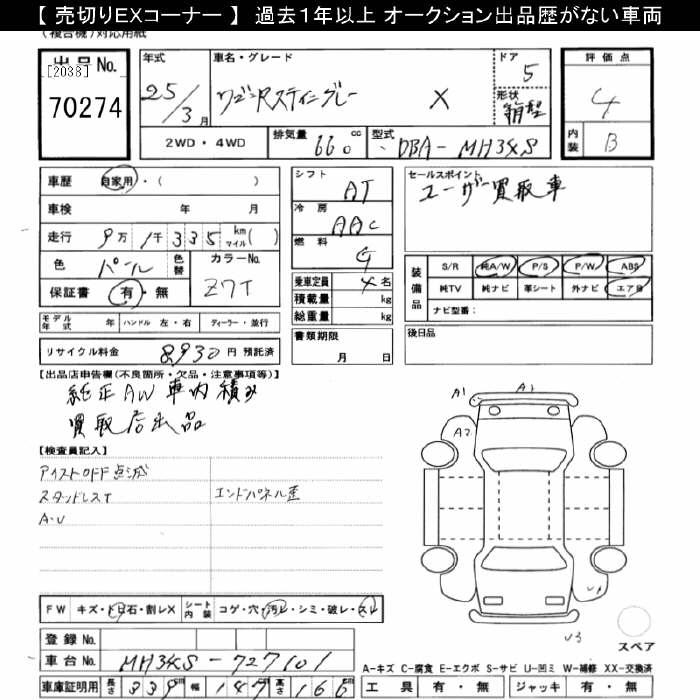 【 売切りEXコーナー 】 過去1年以上 オークション出品歴がない車両
(複合機)対応用紙
出品No.
[2038]
70274
年式
25/3月
車名・グレード
ワゴンRスティングレー X
ドア
5
形状
箱型
評価点
4
内装
B
2WD・4WD
排気量 660cc
型式 DBA-MH34S
車歴 自家用・( )
車検 年 月
走行 9万1千335 km マイル( )
色 パール
色替
カラーNo. Z7T
保証書 有・無
シフト AT
冷房 AAC
燃料 G
乗車定員 4名
積載量 kg
総重量 kg
書類期限
月 日
セールスポイント
ユーザー買取車
装備品
S/R 純A/W P/S P/W ABS
純TV 純ナビ 革シート 外ナビ エアB
ナビ型番:
後日品
モデル年式 年 ハンドル 左・右 ディーラー・並行
リサイクル料金 8930円 預託済
【出品店申告欄(不良箇所・欠品・注意事項等)】
純正AW車内積み
買取店出品
【検査員記入】
アイストOFF点滅
スタッドレスT
エンドパネル歪
A・U
FW キズ・トビ石・割レX
シート内装 コゲ・穴・汚レ・シミ・破レ・スレ
登録No.
車台No. MH34S-727101
車庫証明用 長さ 339cm 幅 147cm 高さ 166cm
A1
A1
A2
U3
スペア
A-キズ C-腐食 E-エクボ S-サビ U-凹ミ W-補修 XX-交換済
工具 有・無 ジャッキ 有・無